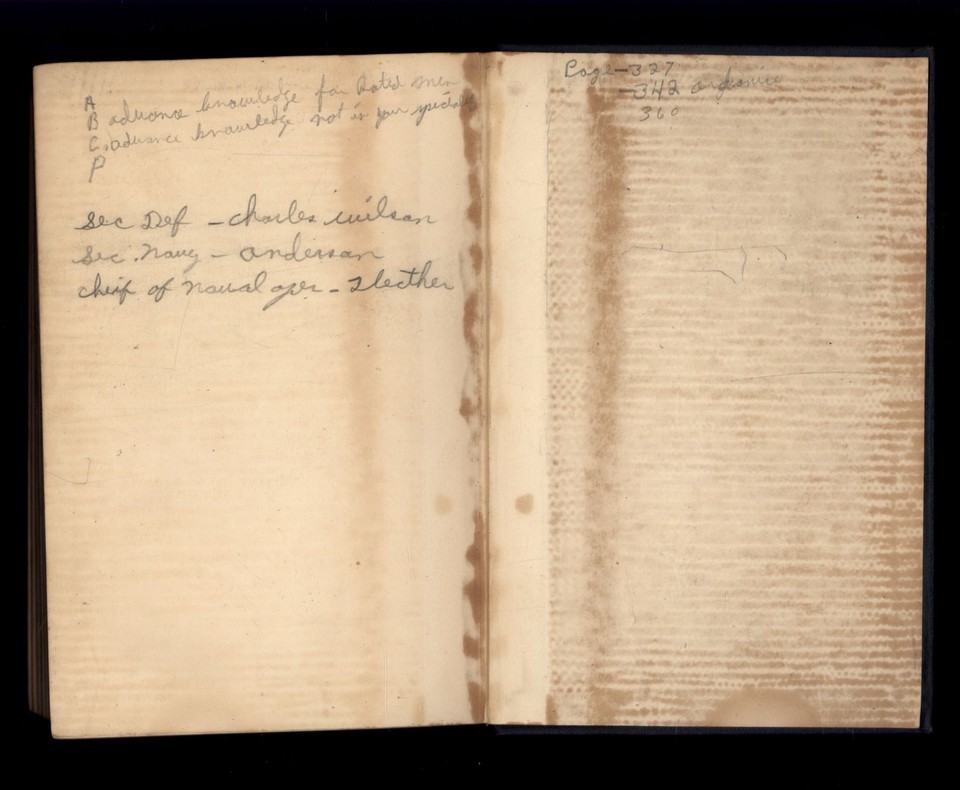 A
B advance knowledge for Rated men
C. advance knowledge not in your speciality
P
Sec Def - Charles Wilson
Sec. Navy - Anderson
Cheif of Naval oper -
Page - 327
- 342
360